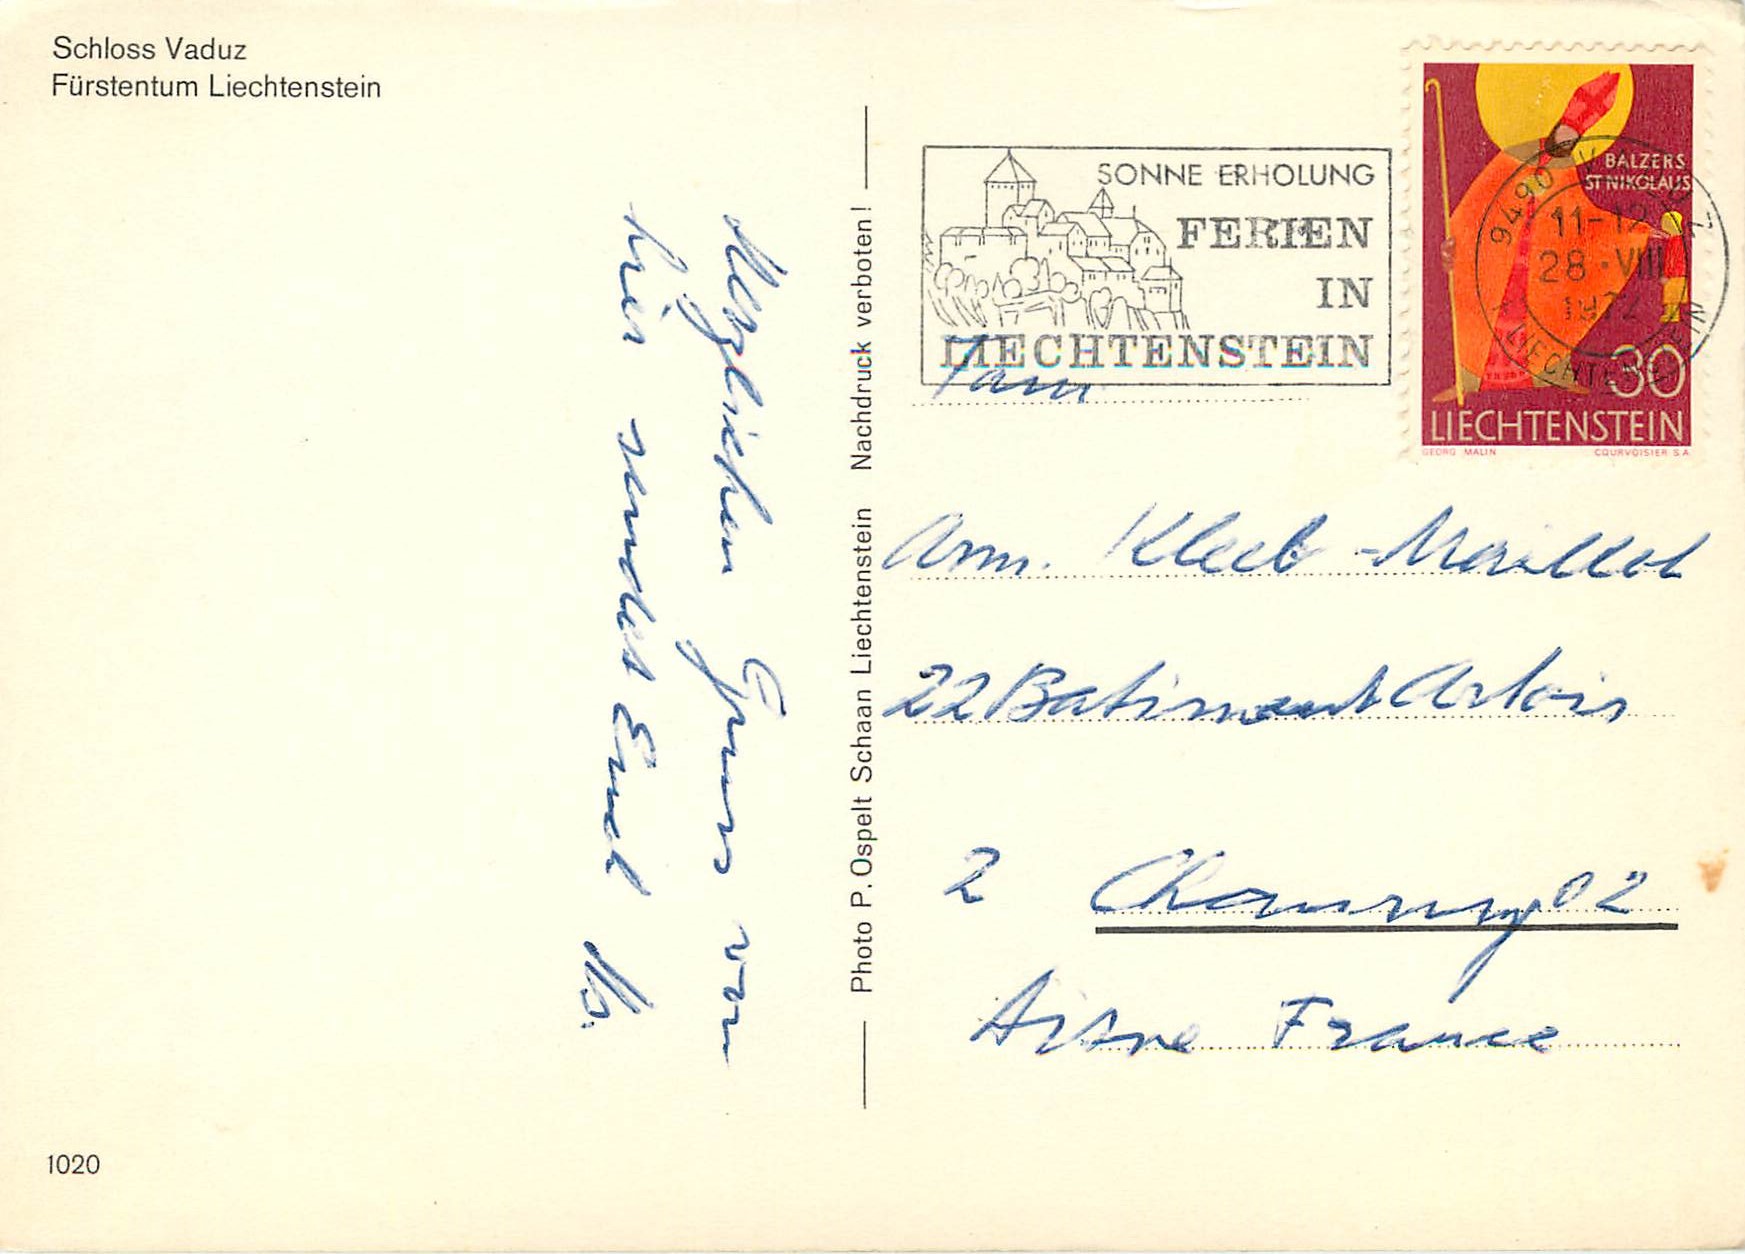 Schloss Vaduz
Fürstentum Liechtenstein
Herzlichen Gruss von
hier sendet Ernst
1020
Photo P. Ospelt Schaan Liechtenstein Nachdruck verboten!
SONNE ERHOLUNG
FERIEN
IN
LIECHTENSTEIN
9490 VADUZ
11-12
28.VIII
1972
LIECHTENSTEIN
BALZERS
ST NIKOLAUS
30
LIECHTENSTEIN
GEORG MALIN COURVOISIER S.A.
Fam
Arm. Kleeb-
22 Batiment Artois
2 Chauny 02
Aisne France